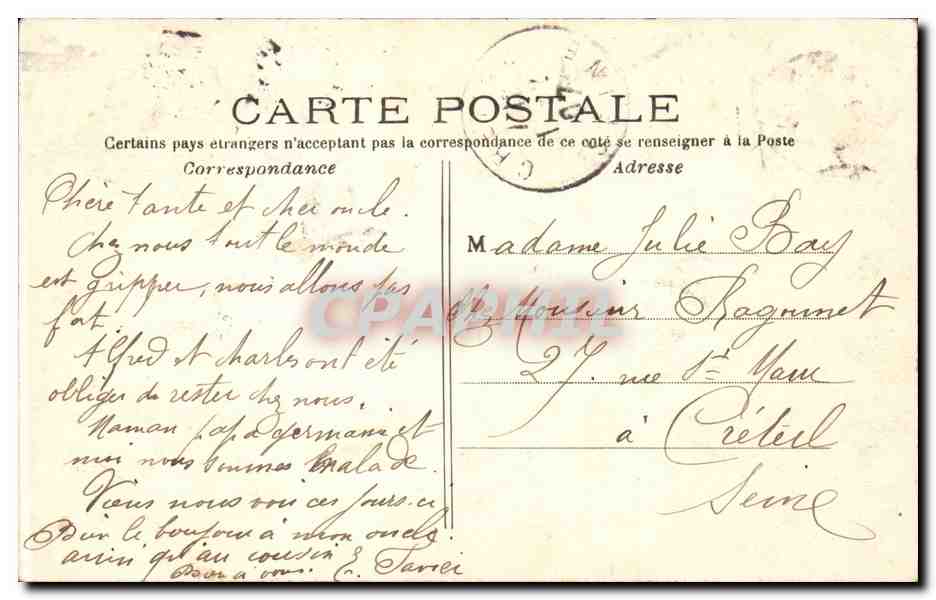 CARTE POSTALE
Certains pays étrangers n'acceptant pas la correspondance de ce coté se renseigner à la Poste
Correspondance
Chère tante et cher oncle.
chez nous tout le monde
est gripper, nous allons pas
fort.
Alfred et charles ont été
obliger de rester chez nous.
Maman papa germaine et
moi nous sommes malade.
Venez nous voir ces jours-ci
Bien le bonjour à mon oncle
ainsi qu'au cousin
Bien à vous. E.
Adresse
Madame Julie Bay
chez Monsieur Ragonnet
27. rue St Maur
à Créteil
Seine
CPAPHIL